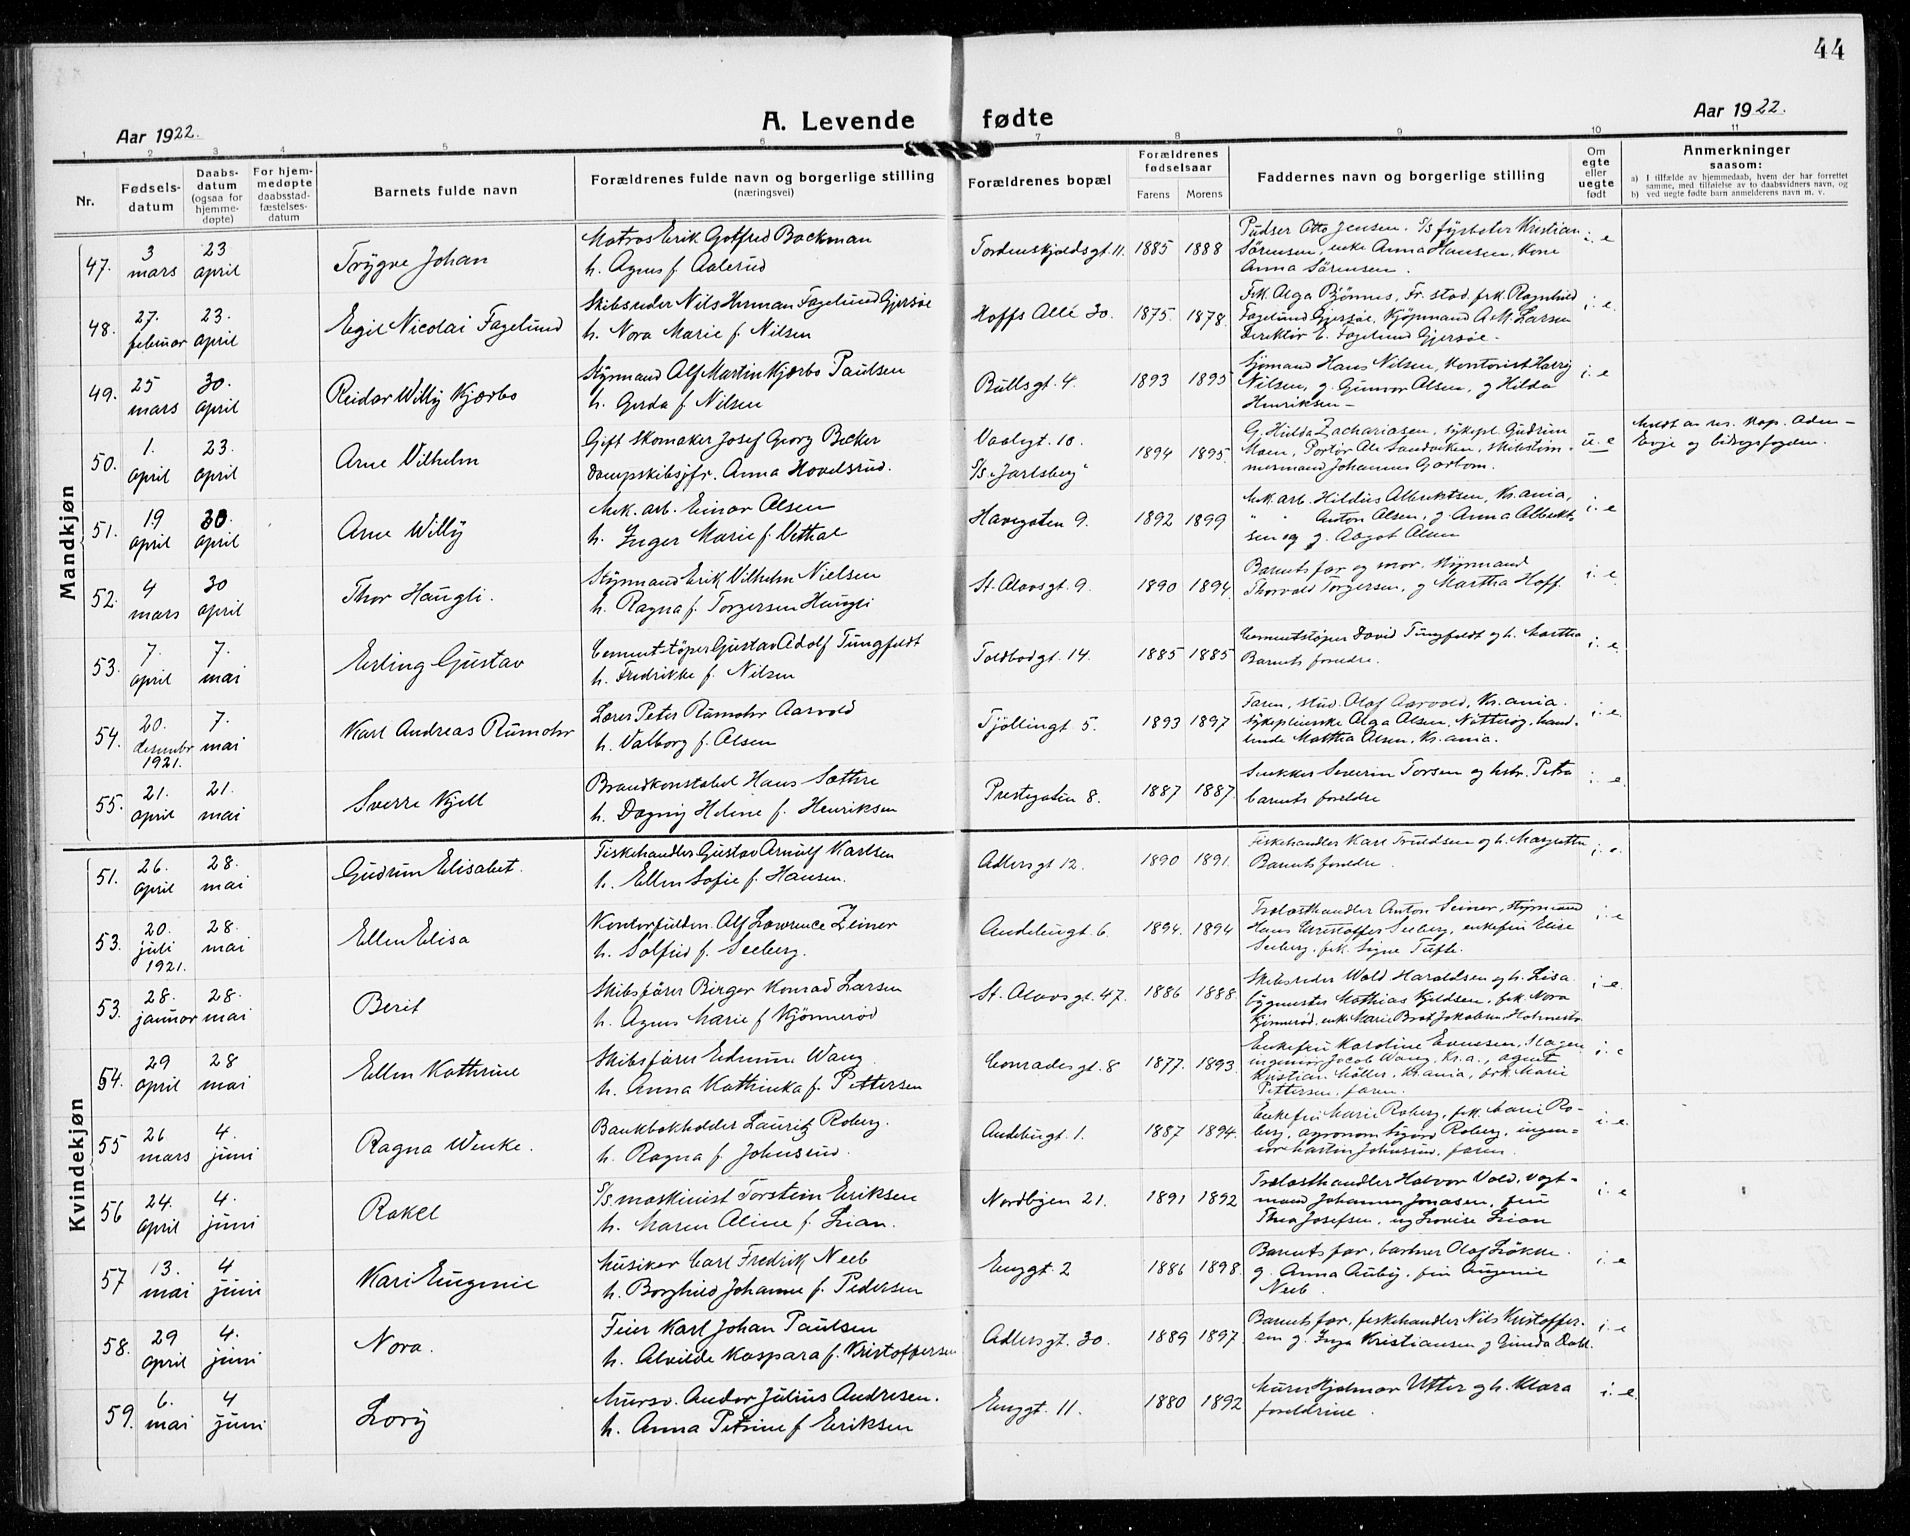 44
A. Levende fødte
Aar 1922.
Aar 1922.
1 2 3 4 5 6 7 8 9 10 11
Nr.
Fødselsdatum
Daabsdatum (ogsaa for hjemmedøpte)
For hjemmedøpte daabsstadfæstelsesdatum
Barnets fulde navn
Forældrenes fulde navn og borgerlige stilling
(næringsvei)
Forældrenes bopæl
Forældrenes fødselsaar
Farens Morens
Faddernes navn og borgerlige stilling
Om egte eller uegte født
Anmerkninger
saasom:
a) I tilfælde av hjemmedaab, hvem der har forrettet samme, med tilføielse av to daabsvidners navn, og
b) ved uegte fødte barn anmelderens navn m. v.
Mandkjøn
47. 3 mars 23 april Trygve Johan
Matros Erik Gotfred Backman
h. Agnes f. Aalerud
Tordenskjoldsgt. 11. 1885 1888
Pudser Otto Jensen. S/s fyrbøter Kristian
Sørensen, enke Anna Hansen, Kone
Anna Sørensen.
i. e
48. 27. februar 23. april Egil Nicolai Fagelund
Skibsreder Nils Herman Fagelund Gjersøe
h. Nora Marie f. Nilsen
Hoffs Allé 30. 1875. 1878.
Frk. Alga Bjönnes, Fr. stad. frk. Ragnhild
Fagelund Gjersøe, Kjøpmand A. M. Larsen
Direktør E. Fagelund Gjersøe.
i. e.
49. 25 mars 30. april Reidar Willy Kjærbo
Styrmand Alf Martin Kjærbo Paulsen
h. Gerda f. Nilsen
Bullsgt. 4. 1893 1895
Sjömand Hans Nilsen, Kontorist Harry
Nilsen, g. Gunvor Olsen, g Hilda
Henriksen
i. e
50. 1. april 23. april Arne Vilhelm
Gift Skomaker Josef Georg Becker
Dampskibsjfr. Anna Hovelsrud.
Vaaligt. 10.
S/s "Jarlsberg"
1894 1895.
G. Hilda Zachariasen, sykepl. Gudrun
Moen, Portør Ole Sandviken, Skibstöm-
mermand Johannes
u. e
Meldt av res. Kap.
Evje og bidragsfogden.
51. 19 april 30. april Arne Willy
Mek. arb. Einar Olsen
h. Inger Marie f. Vethal
Havegaten 9. 1892 1899
Mek. arb. Hildus Albrektsen, Kr.ania,
" " Anton Olsen, g. Anna Albrekt-
sen og g. Aagot Olsen
i. e
52. 4 mars 30 april Thor Haugli.
Styrmand Erik Vilhelm Nielsen
h. Ragna f. Torgersen Haugli
St. Olavsgt. 9. 1890 1894.
Barnets far og mor, styrmand
Thorvald Torgersen, g Martha Hoff.
i. e.
53. 7. april 7. mai Erling Gustav
Cementstøper Gustav Adolf Tungfeldt
h. Fredrikke f. Nilsen
Toldbodgt. 14. 1885 1885
Cementstøper David Tungfeldt og h. Martha
Barnets foreldre.
i. e.
54. 20. desember 1921. 7. mai Karl Andreas Rumohr
Lærer Peter Rumohr Aarvold
h. Valborg f. Olsen
Tjöllingt 5. 1893 1897
Faren, stud. Olaf Aarvold, Kr.ania.
sykepleierske Olga Olsen, Nötterøy, hand-
lende Martha Olsen, Kr.ania.
i. e.
55. 21. april 21. mai Sverre Kjell
Brandkonstabel Hans Sæthre
h. Dagny Helene f. Henriksen
Prestegaten 8. 1887 1887.
Snekker Severin Torsen og hstr. Petra
barnets foreldre
i. e.
Kvindekjøn
51. 26. april 28. mai Gudrun Elisabet.
Fiskehandler Gustav Arnulf Karlsen
h. Ellen Sofie f. Hansen.
Adlersgt 12. 1890 1891.
Fiskehandler Karl Truldsen og h. Margrethe
Barnets foreldre.
i. e.
53. 20. juli 1921. 28. mai Ellen Elisa
Kontorfuldm. Alf Lawrence Zeiner
h. Solfrid f. Seeberg.
Andebugt. 6. 1894. 1894
Trælasthandler Anton Seiner, styrmand
Hans Christoffer Seeberg, enkefru Elise
Seeberg, frk. Signe Tufte.
i. e
53. 28. januar 28. mai Berit
Skibsfører Birger Konrad Larsen
h. Agnes Marie f Kjönnerød
St. Olavsgt. 47. 1886 1888.
Skibsreder Wald. Haraldsen og h. Lisa.
bygmester Mathias Kjeldsen, frk. Nora
Kjønnerød, enke Marie Brot Jakobsen
i. e.
54. 29 april 28 mai Ellen Kathrine
Skibsfører Edmune Wang.
h. Anna Kathinka f. Pettersen
Conradesgt. 8 1877. 1893.
Enkefru Karoline Evensen,
ingeniør Jacob Wang, Kr.a., agent
Kristian Møller, Kr.ania, frk. Marie
Pettersen, faren.
i. e
55 26 mars 4. juni Ragna Wenke.
Bankbokholder Lauritz Roberg.
h. Ragna f. Johnsrud.
Andebugt. 1. 1887 1894.
Enkefru Marie Roberg, frk. Marie Ro-
berg, agronom Sigurd Roberg, ingen-
iør Martin Johnsrud. faren.
i. e.
56 24. april 4. juni Rakel
S/s maskinist Torstein Eriksen
h. Maren Aline f. Lian.
Nordbyen 21. 1891 1892
Trælasthandler Halvor Vold, vogt-
mand Johannes Jonasen, fru
Thea Josefsen, og Lovise Lian
i. e
57 13. mai 4 juni Kari Eugenie
Musiker Carl Fredrik Neeb
h. Borghild Johanne f. Pedersen
Enggt. 2 1886 1898.
Barnets far, barberer Olaf Løkke.
g. Anna Auby, fru Augenie
Neeb.
i. e
58. 29 april 4. juni Nora.
Feier Karl Johan Paulsen
h. Alvilde Kaspara f. Kristoffersen
Adlersgt. 30. 1889 1897.
Barnets far, fiskehandler Nils Kristoffer-
sen g. Inga Kristiansen g Gunda Dahl.
i. e
59. 6. mai 4 juni Lory
Mursv. Andor Julius Andresen.
h. Anna Petrine f Eriksen
Enggt. 11. 1880 1892
Murer Hjalmar Utter og h. Klara
foreldrene.
i. e.